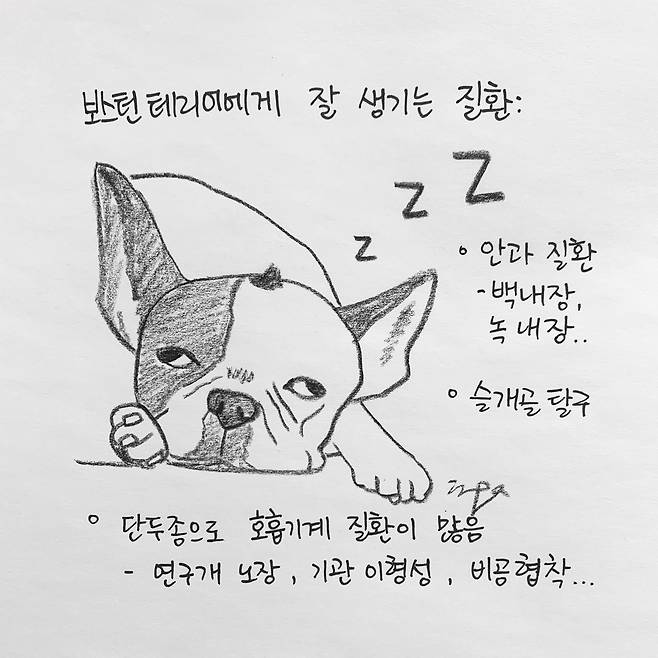 봐스턴 테리어에게 잘 생기는 질환:
z z z
안과 질환
- 백내장,
녹내장..
슬개골 탈구
단두종으로 호흡기계 질환이 많음
- 연구개 노장, 기관 이형성, 비공협착...